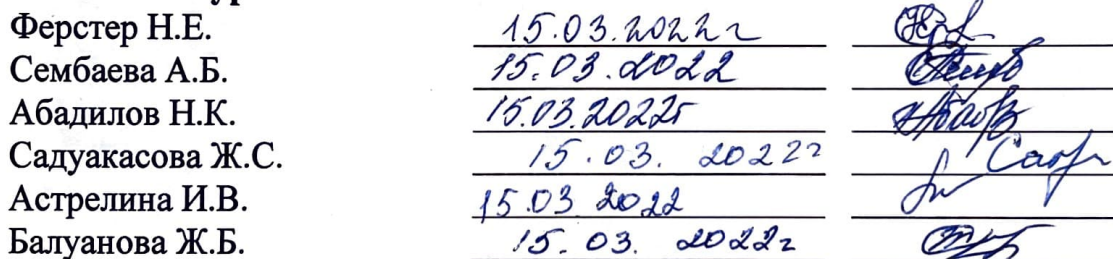 Ферстер Н.Е. 15.03.2022 г
Сембаева А.Б. 15.03.2022
Абадилов Н.К. 15.03.2022г
Садуакасова Ж.С. 15.03. 2022г
Астрелина И.В. 15.03 2022
Балуанова Ж.Б. 15.03. 2022г